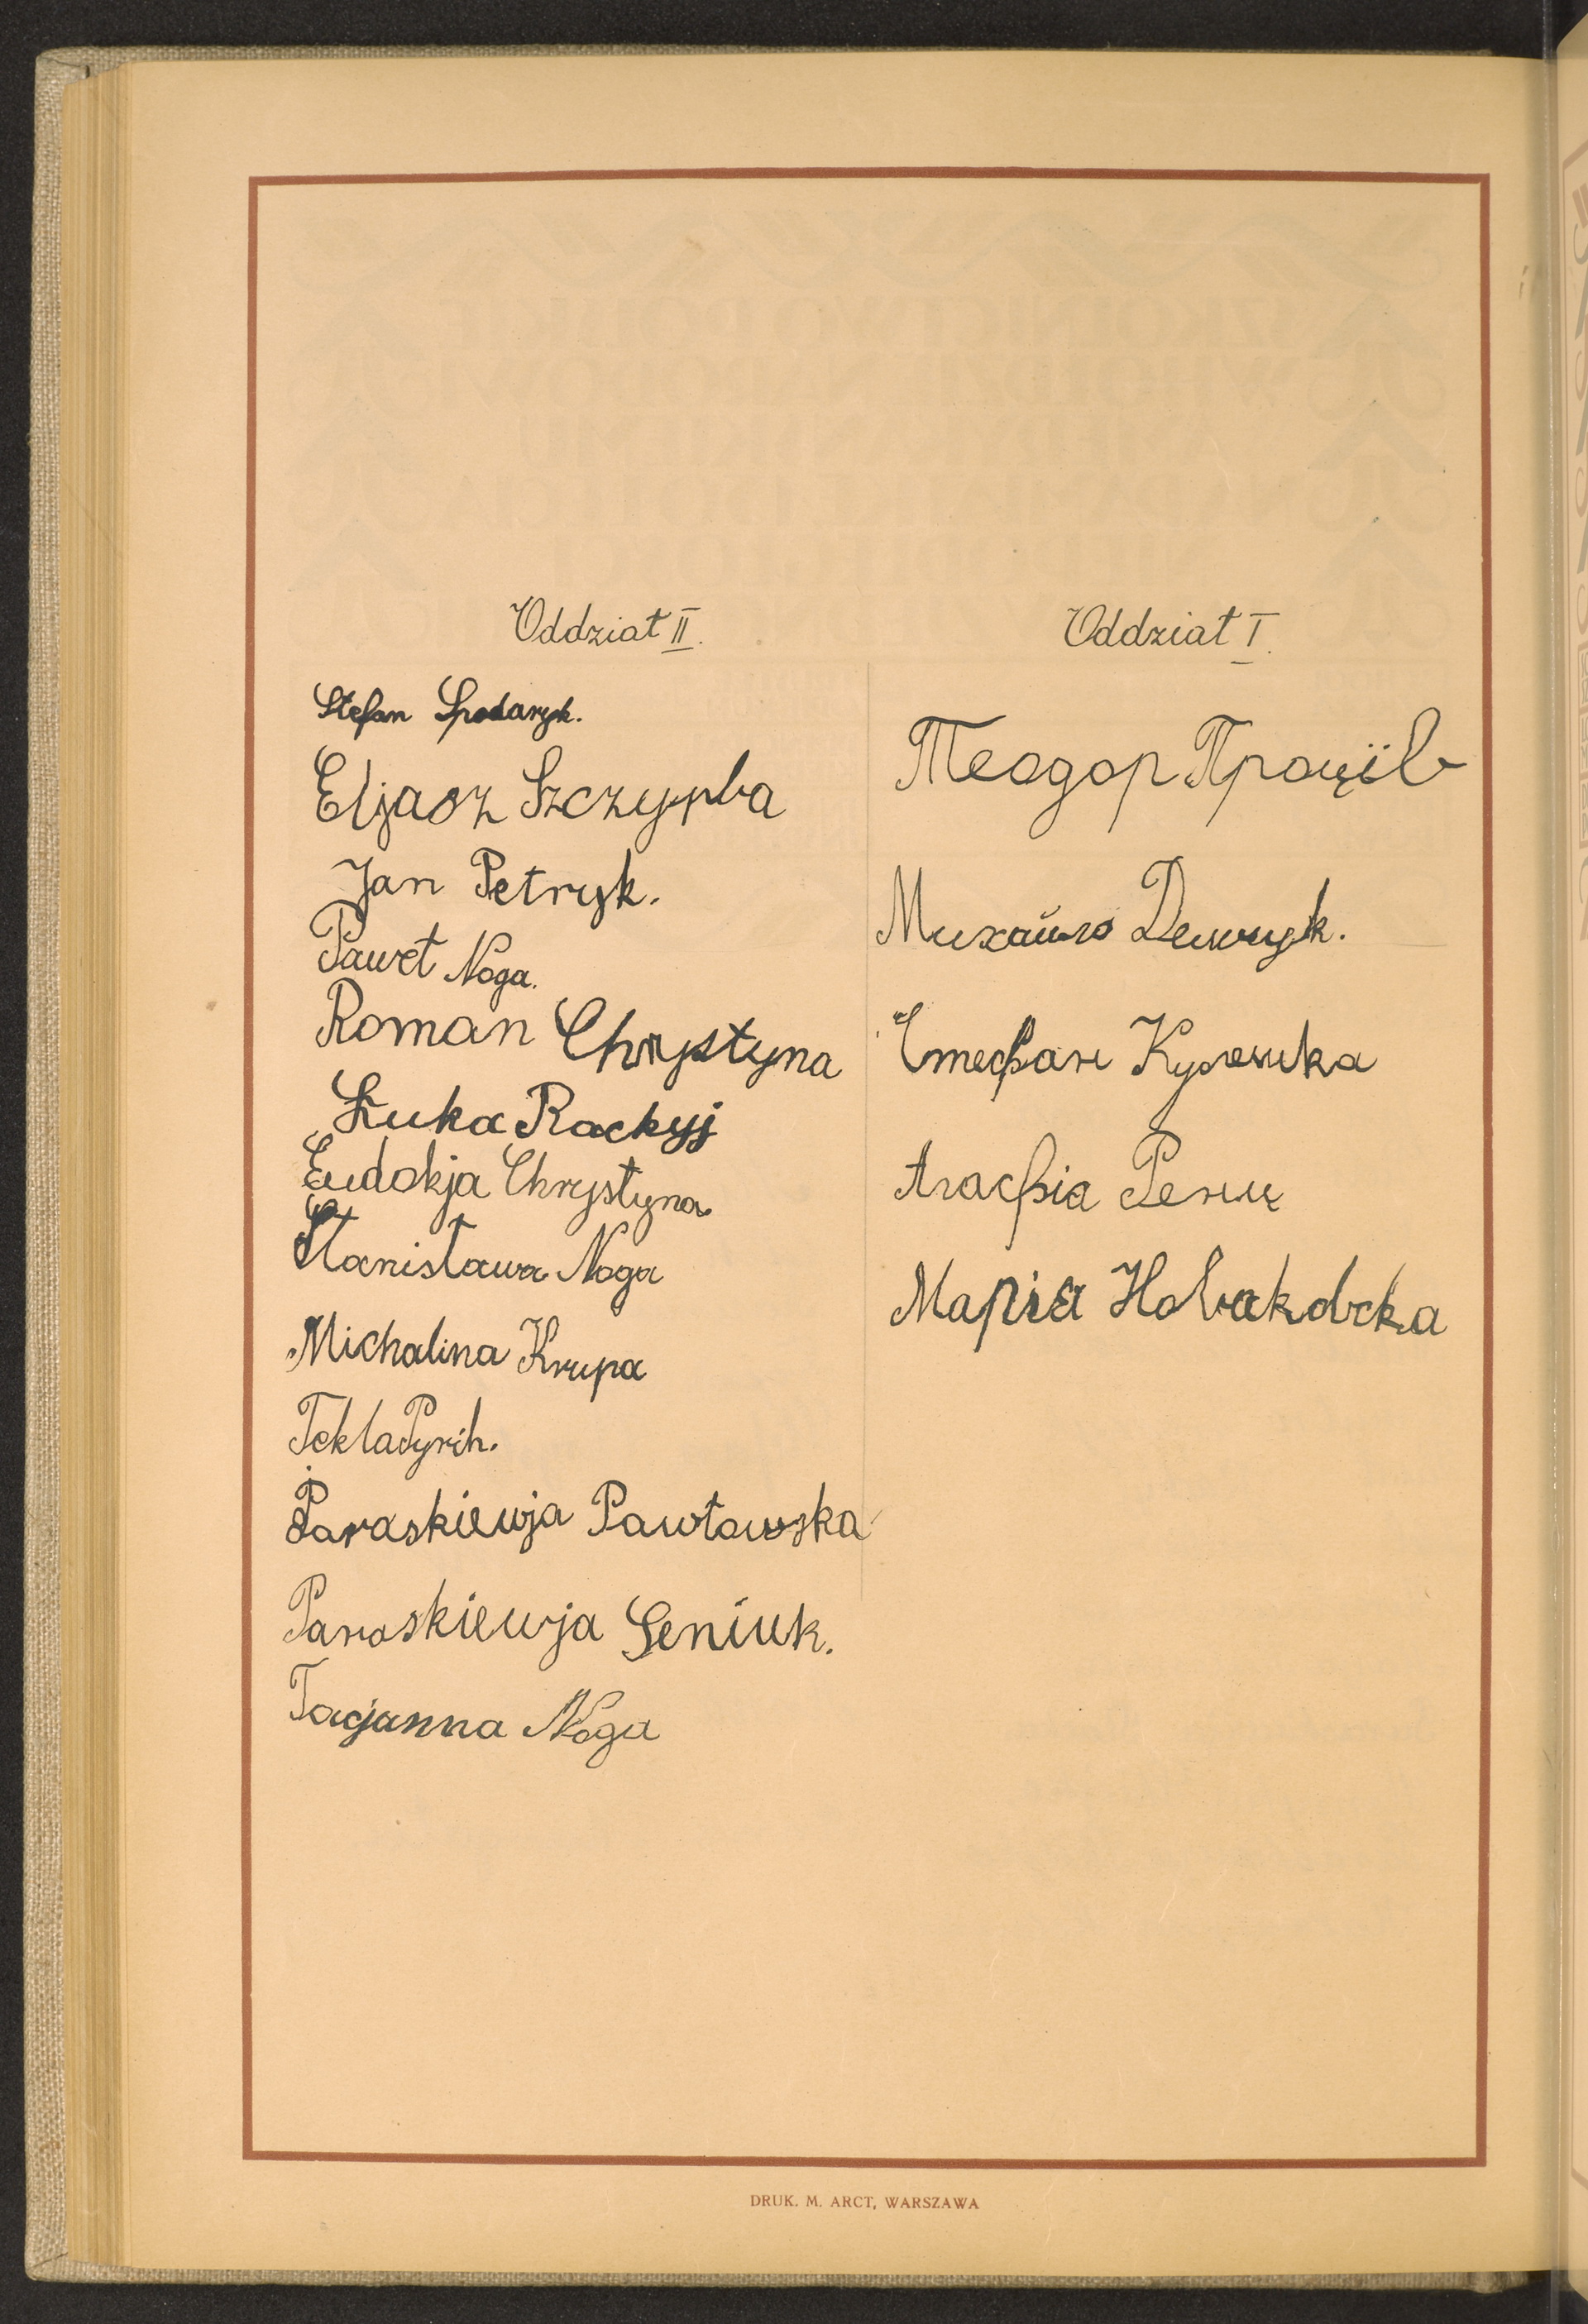 Oddział II.
Stefan Spodaryk.
Eljasz Szczypba
Jan Petryk.
Paweł Noga.
Roman Chrystyna
Łuka Rackyj
Eudokja Chrystyna.
Stanisława Noga
Michalina Krupa
Tekla Pyrih.
Paraskiewja Pawłowska
Paraskiewja Seniuk.
Tacjanna Noga
Oddział I.
Теодор Проців
Михайло
Стефан
Агафія Ренц
Марія Новаковска
DRUK. M. ARCT, WARSZAWA